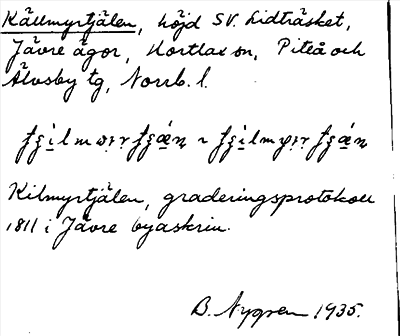 Källmyrtjälen, höjd SV. Lidträsket,
Jävre ägor, Hortlax sn, Piteå och
Älvsby tg, Norrb. l.
Kilmyrtjälen, graderingsprotokoll
1811 i Jävre byaskrin.
B. Nygren 1935.